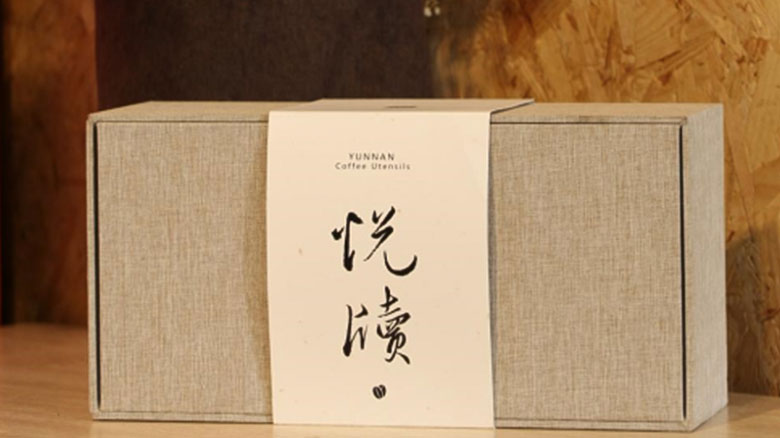 YUNNAN
Coffee Utensils
悦
牘